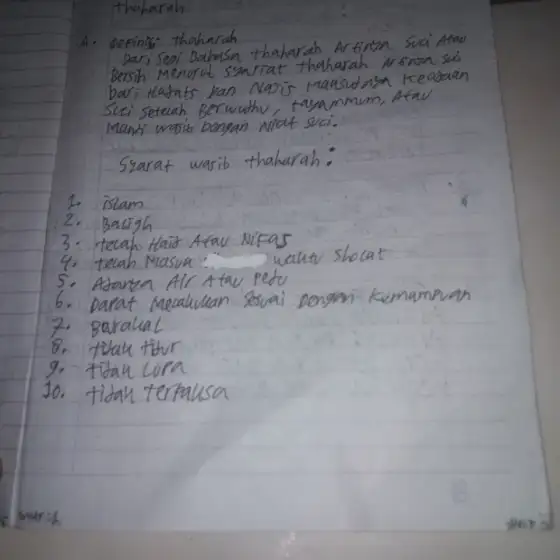 thoharah
A. Definisi thaharah
Dari Segi Bahasa thaharah Artinya Suci Atau
Bersih Menurut Syariat thaharah Artinya Suci
Dari Hadats Dan Najis Maksudnya Keadaan
Suci Setelah Berwudhu, tayammum, Atau
Mandi wajib Dengan Niat Suci.
Syarat wajib thaharah :
1. islam
2. Baligh
3. telah Haid Atau Nifas
4. telah Masuk waktu Sholat
5. Adanya Air Atau Debu
6. Dapat Melakukan Sesuai Dengan Kemampuan
7. Berakal
8. tidak tidur
9. tidak Lupa
10. tidak terpaksa